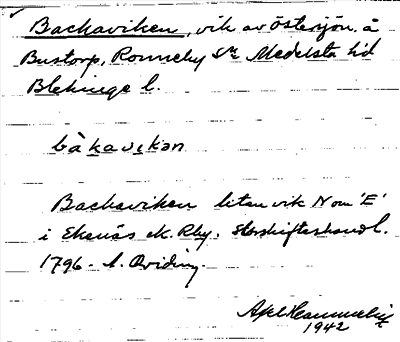 Backaviken, vik av Östersjön å
Bustorp, Ronneby Sn Medelsta hd
Blekinge l.
bàkavikan
Backaviken liten vik N om 'E'
i Ekenäs ek. Rby. storskifteshandl.
1796.
Axel
1942